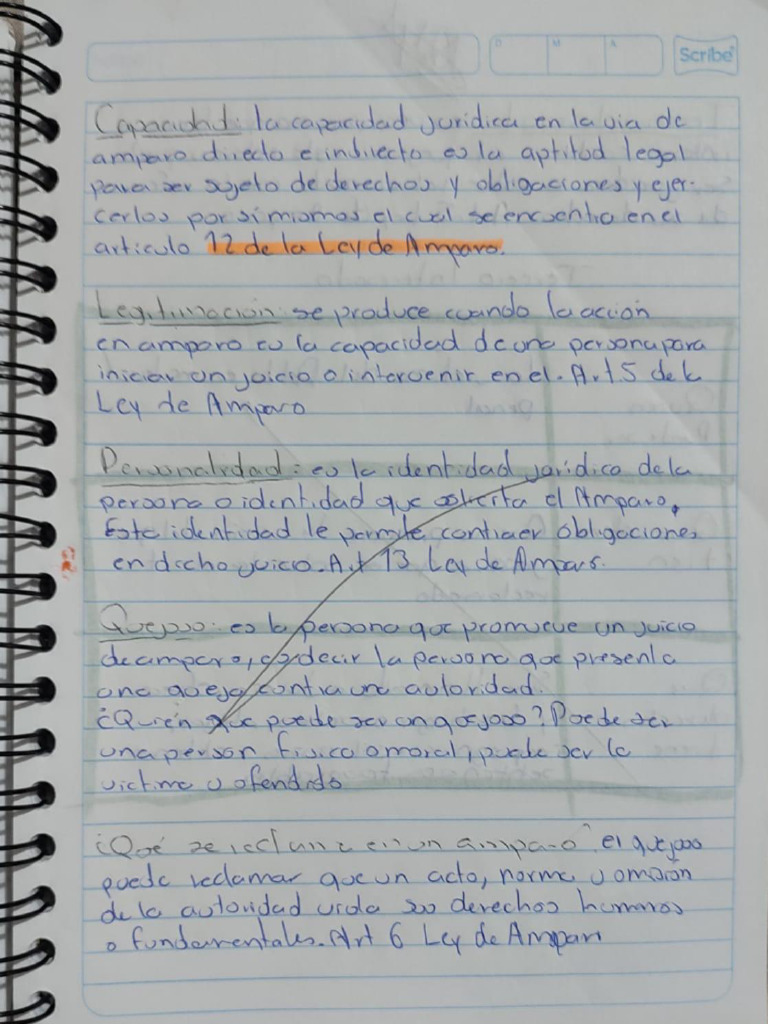 Scribe
D M A
Capacidad: la capacidad juridica en la via de
amparo directo e indirecto es la aptitud legal
para ser sujeto de derechos y obligaciones y ejer-
cerlos por si mismos el cual se encuentra en el
articulo 12 de la Ley de Amparo.
Legitimación: se produce cuando la acción
en amparo es la capacidad de una persona para
iniciar un juicio o intervenir en el. Art 5 de la
Ley de Amparo
Personalidad: es la identidad juridica de la
persona o identidad que solicita el Amparo.
Esta identidad le permite contraer obligaciones
en dicho juicio. Art 13 Ley de Amparo.
Quejoso: es la persona que promueve un juicio
de amparo, es decir la persona que presenta
una queja contra una autoridad.
¿Quién que puede ser un quejoso? Puede ser
una person fisica o moral, puede ser la
victima u ofendido
¿Qué se reclama en un amparo? el quejoso
puede reclamar que un acto, norma u omisión
de la autoridad viola sus derechos humanos
o fundamentales. Art 6 Ley de Amparo